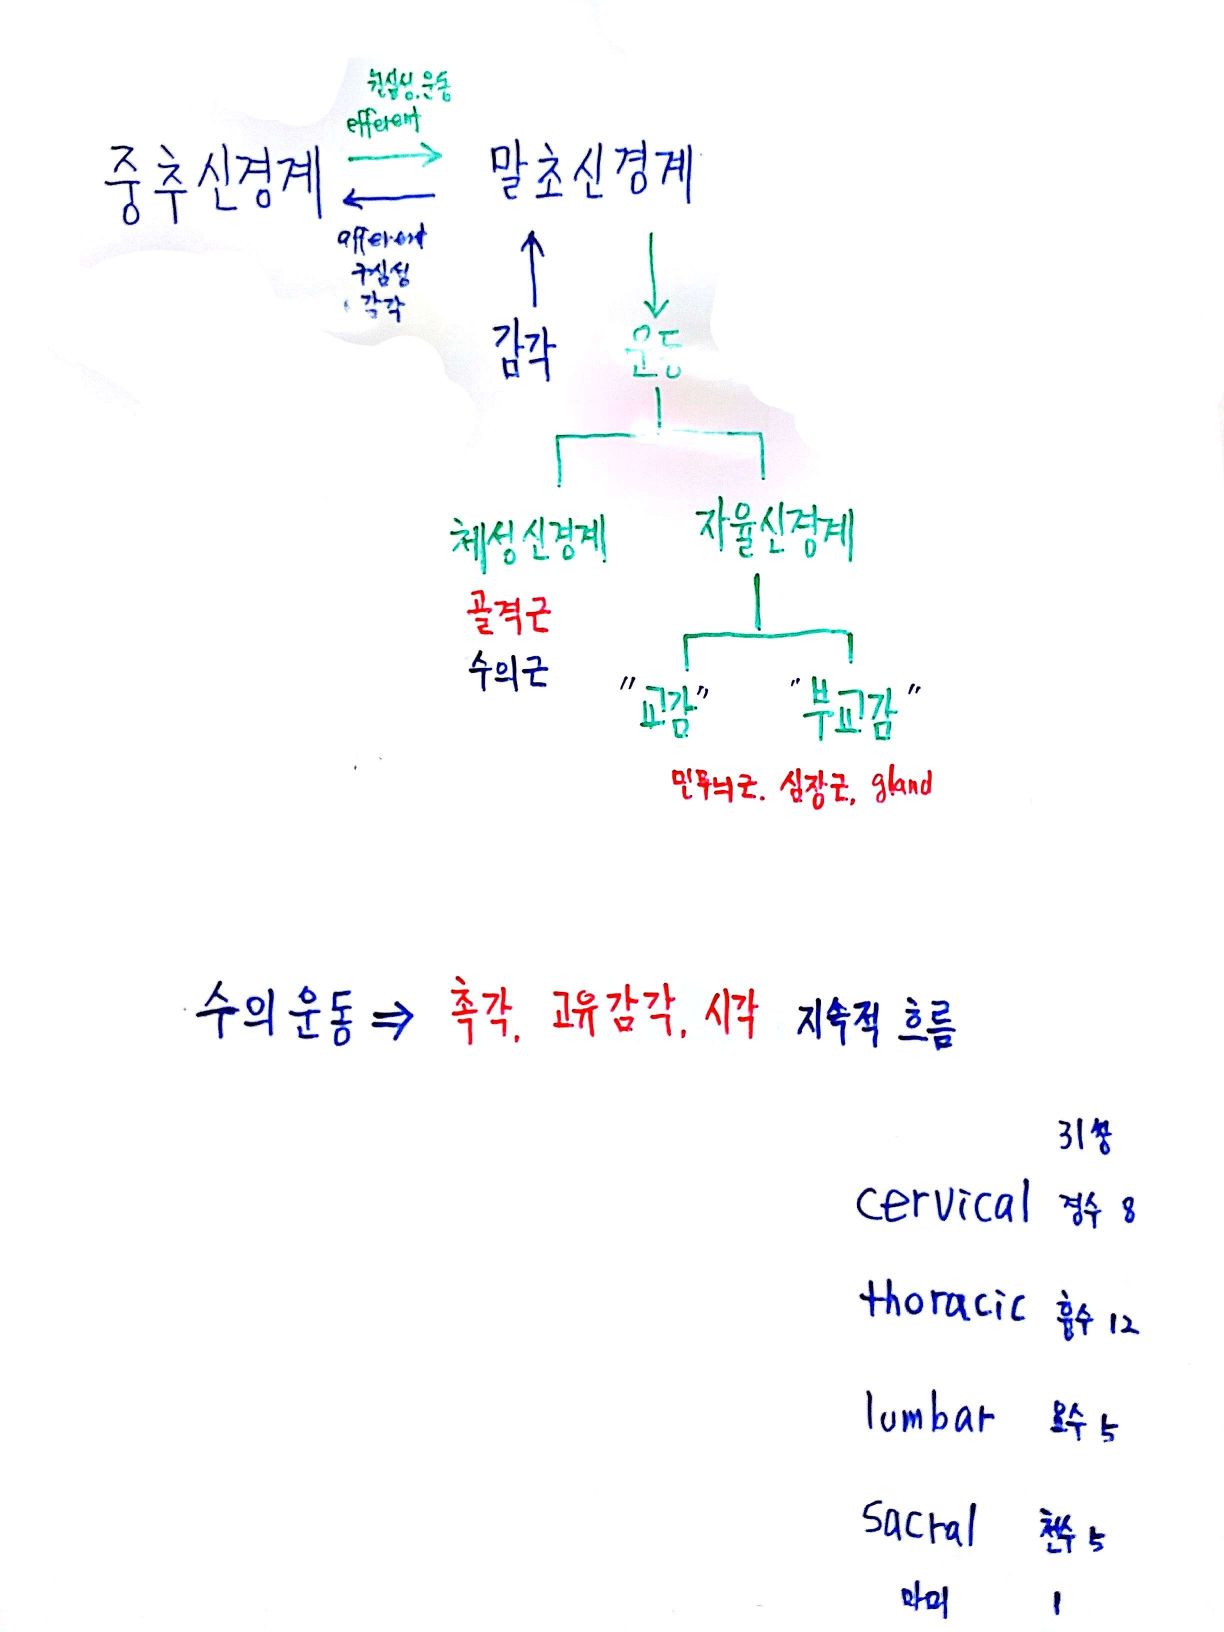 원심성.운동
efferent
중추신경계 말초신경계
afferent
구심성
감각
감각 운동
체성신경계 자율신경계
골격근
수의근
"교감" "부교감"
민무늬근. 심장근, gland
수의운동 ⇒ 촉각, 고유감각, 시각 지속적 흐름
31쌍
cervical 경수 8
thoracic 흉수 12
lumbar 요수 5
sacral 천수 5
마미 1